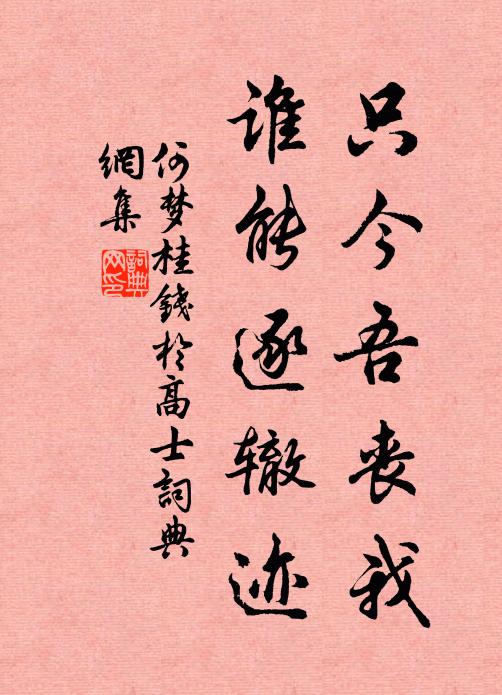 只今吾丧我
谁能逐辙迹
何梦桂錢於高士詞典
網集
詞典
网印